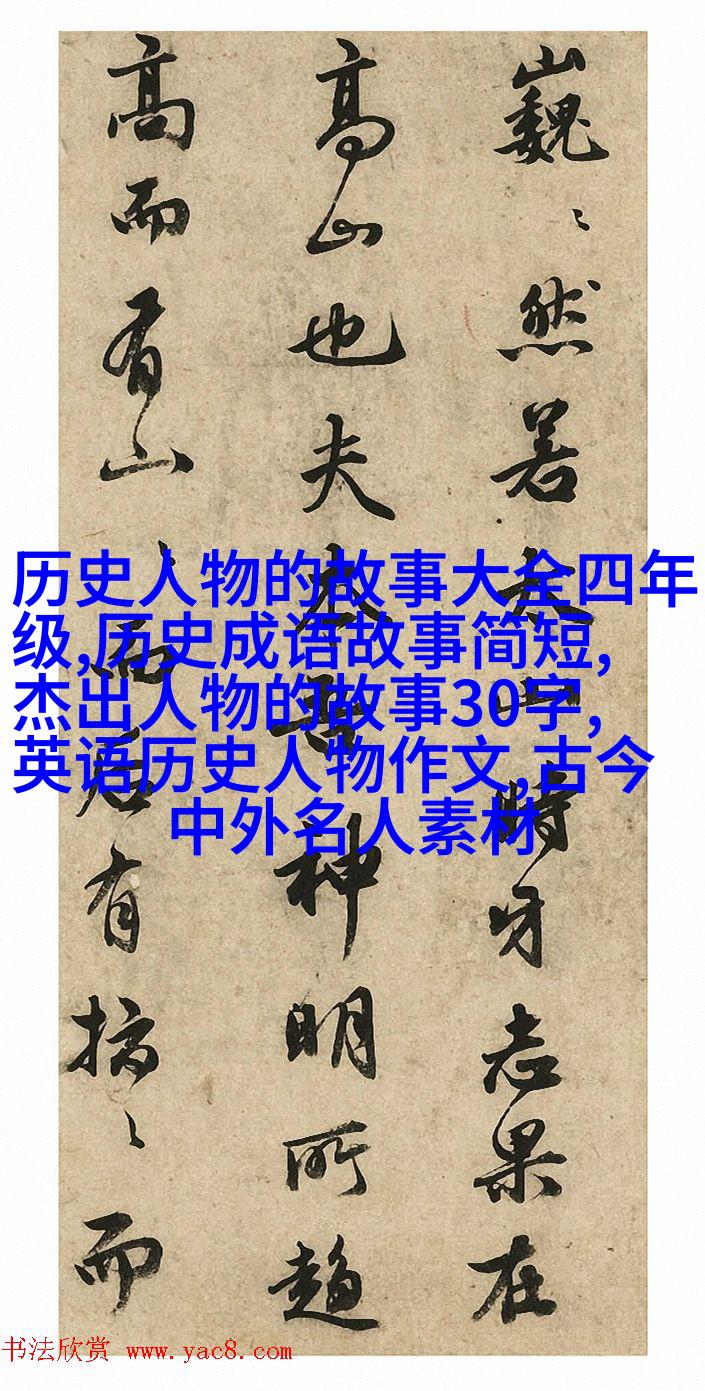 巍〻然若太山時牙志果在
高山也夫本神明所趣
高而有山〻而有〻而
历史人物的故事大全四年
级,历史成语故事简短,
杰出人物的故事30字,
英语历史人物作文,古今
中外名人素材
书法欣赏 www.yac8.com